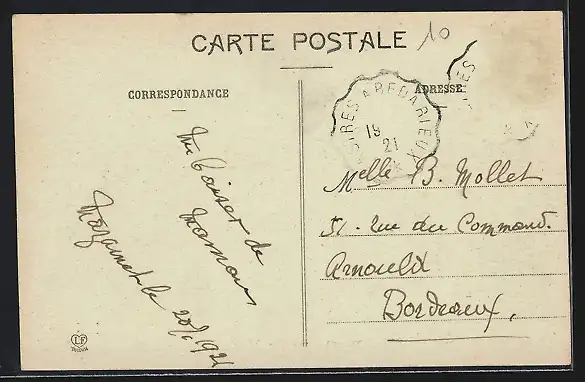 CARTE POSTALE
10
CORRESPONDANCE
ADRESSE
A BEDARIEUX
19
21
Un baiser de
Maman
Mazamet le 20/ 1921
Melle B. Mollet
51. rue du Command.
Arnould
Bordeaux.
LF